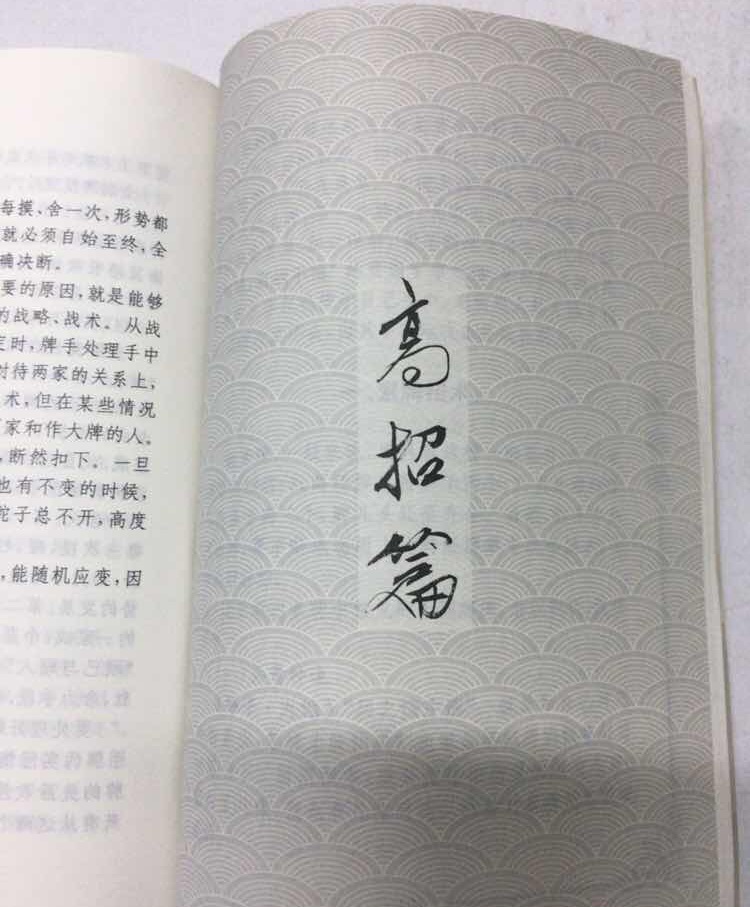 每摸、舍一次,形势都
就必须自始至终,全
确决断。
要的原因,就是能够
的战略、战术。从战
定时,牌手处理手中
对待两家的关系上,
术,但在某些情况
家和作大牌的人。
,断然扣下。一旦
也有不变的时候,
舵子总不开,高度
,能随机应变,因
高招篇